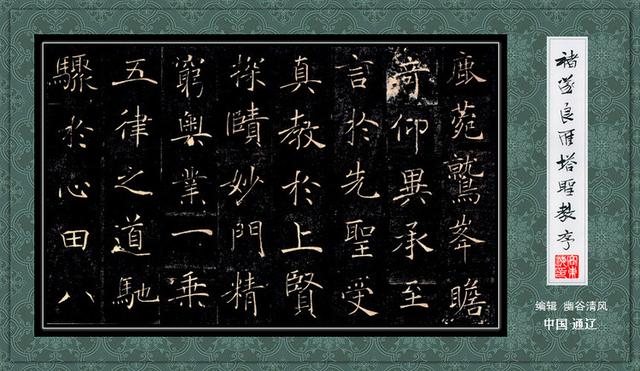 褚遂良雁塔聖教序
编辑 幽谷清风
中国·通辽
鹿菀鷲峯瞻
奇仰異承至
言於先聖受
真教於上賢
探賾妙門精
窮奧業一乘
五律之道馳
驟於心田八